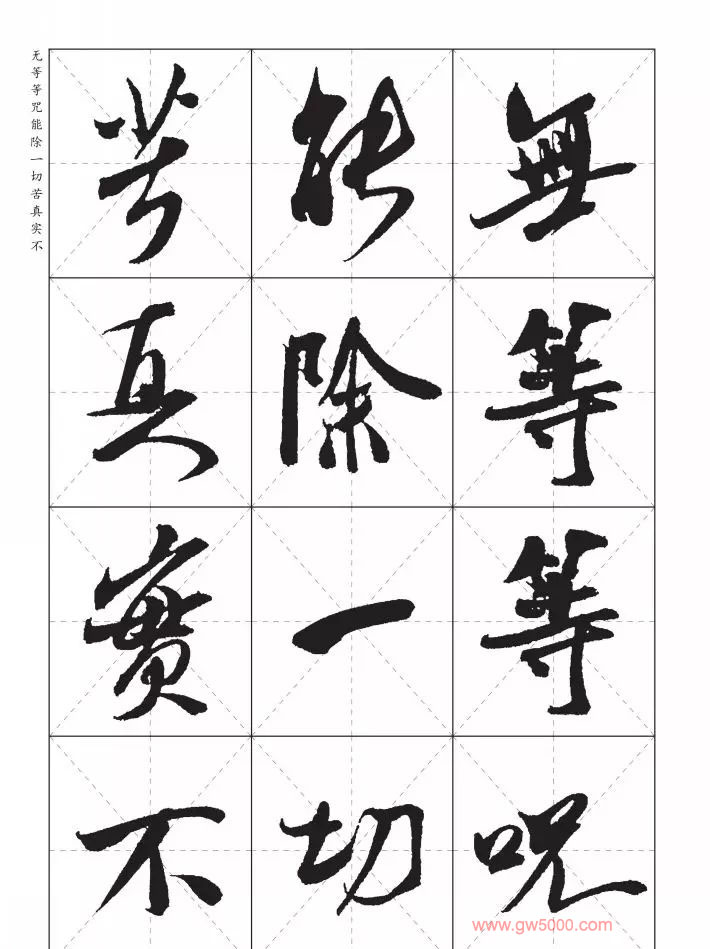 无等等咒能除一切苦真实不
無等等呪
能除一切
苦真實不
www.gw5000.com